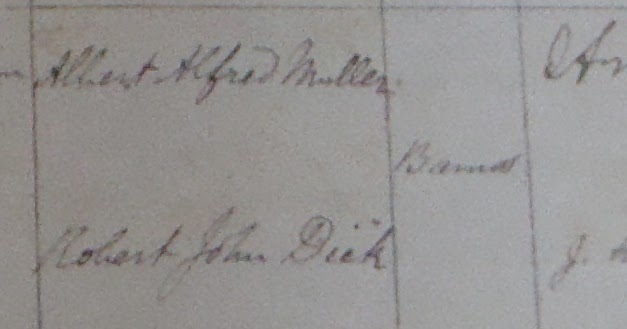 Albert Alfred Muller
Banns
Robert John Dick
J.